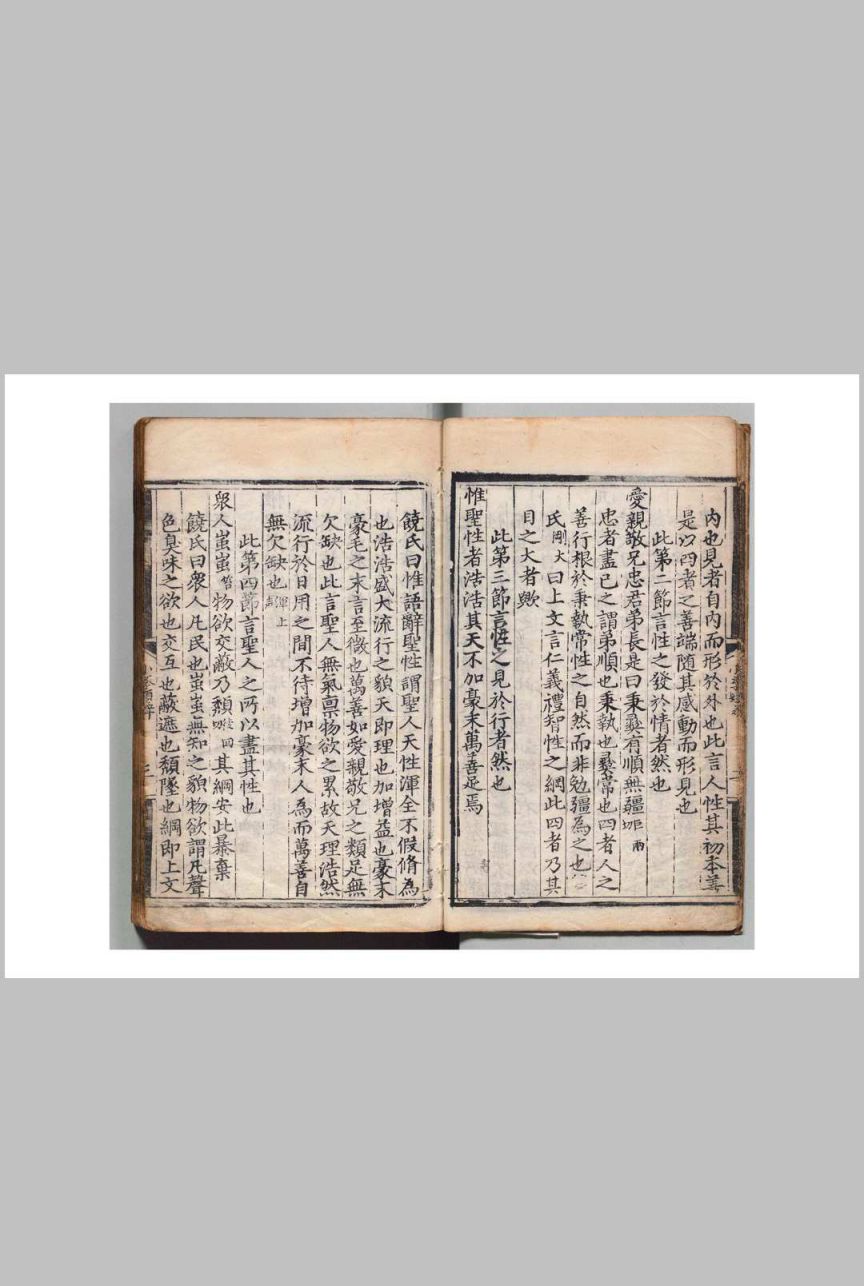 內也見者自內而形於外也此言人性其初本善
是以四者之善端隨其感動而形見也
此第二節言性之發於情者然也
愛親敬兄忠君弟長是曰秉彝有順無彊
忠者盡己之謂弟順也秉執也彝常也四者人之
善行根於秉執常性之自然而非勉彊為之也
氏剛大曰上文言仁義禮智性之綱此四者乃其
目之大者歟
此第三節言性之見於行者然也
惟聖性者浩浩其天不加豪末萬善足焉
饒氏曰惟語辭聖性謂聖人天性渾全不假脩為
也浩浩盛大流行之貌天即理也加增益也豪末
豪毛之末言至微也萬善如愛親敬兄之類足無
欠缺也此言聖人無氣禀物欲之累故天理浩然
流行於日用之間不待增加豪末人為而萬善自
無欠缺也渾上
此第四節言聖人之所以盡其性也
衆人蚩蚩物欲交蔽乃頹其綱安此暴棄
饒氏曰衆人凡民也蚩蚩無知之貌物欲謂凡聲
色臭味之欲也交互也蔽遮也頹墜也綱即上文
三